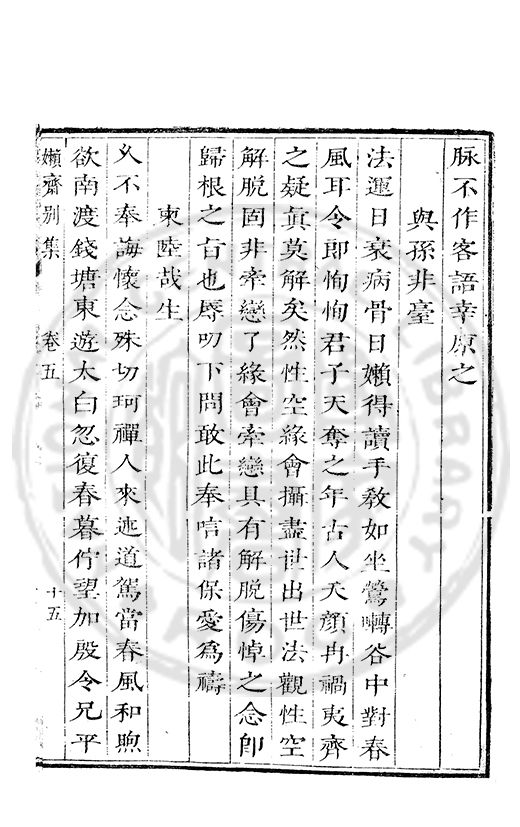 脉不作客語幸原之
與孫非臺
法運日衰病骨日嬾得讀手教如坐鶯囀谷中對春
風耳令郎恂恂君子天奪之年古人夭顏冉禍夷齊
之疑真莫解矣然性空緣會攝盡世出世法觀性空
解脫固非牽戀了緣會牽戀具有解脫傷悼之念卽
歸根之旨也辱叨下問敢此奉唁諸保愛爲禱
柬陸哉生
久不奉誨懷念殊切珂禪人來述道駕當春風和煦
欲南渡錢塘東遊太白忽復春暮佇望加殷令兄平
嬾齋別集 卷五 十五